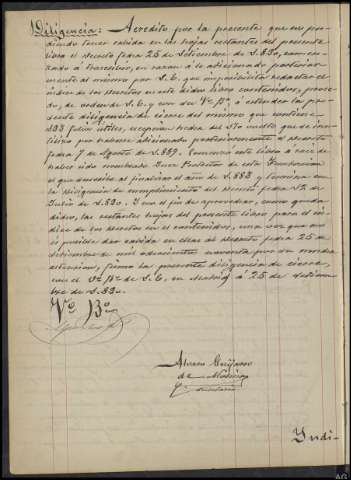 Diligencia: Acredito por la presente que no pu-
diendo tener cabida en las hojas restantes del presente
libro el Decreto fecha 25 de Setiembre de 1.890, comen-
zado á transcribir, en razón á lo adicionado posterior-
mente al mismo por S.E. que imposibilita redactar el
índice de los Decretos en este dicho libro contenidos, proce-
do, de orden de S.E. y con su Vº Bº, á estender la pre-
sente diligencia de cierre del mismo que contiene
folios útiles,
fecha 7 de Agosto de 1.889. Comenzó este libro á raiz de
haber sido nombrado Juez Protector de esta Fundación
el que suscribe al finalizar el año de 1.888 y termina en
la diligencia de cumplimiento del Decreto fecha 12 de
Julio de 1.890. Y con el fin de aprovechar, como queda
dicho, las restantes hojas del presente libro para el ín-
dice de los Decretos en él contenidos, una vez que no
es posible dar cabida en ellas al Decreto fecha 25 de
Setiembre de mil ochocientos noventa por su mucha
extensión, firmo la presente diligencia de cierre,
con el Vº Bº de S.E. en Madrid á 25 de Setiem-
bre de 1.890.
Vº Bº
Alvaro
de
Secretario
Indi-